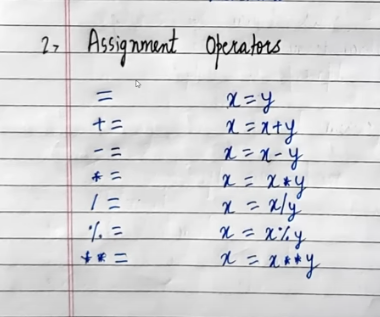 2, Assignment Operators
= x = y
+= x = x+y
-= x = x-y
*= x = x*y
/= x = x/y
%= x = x%y
**= x = x**y